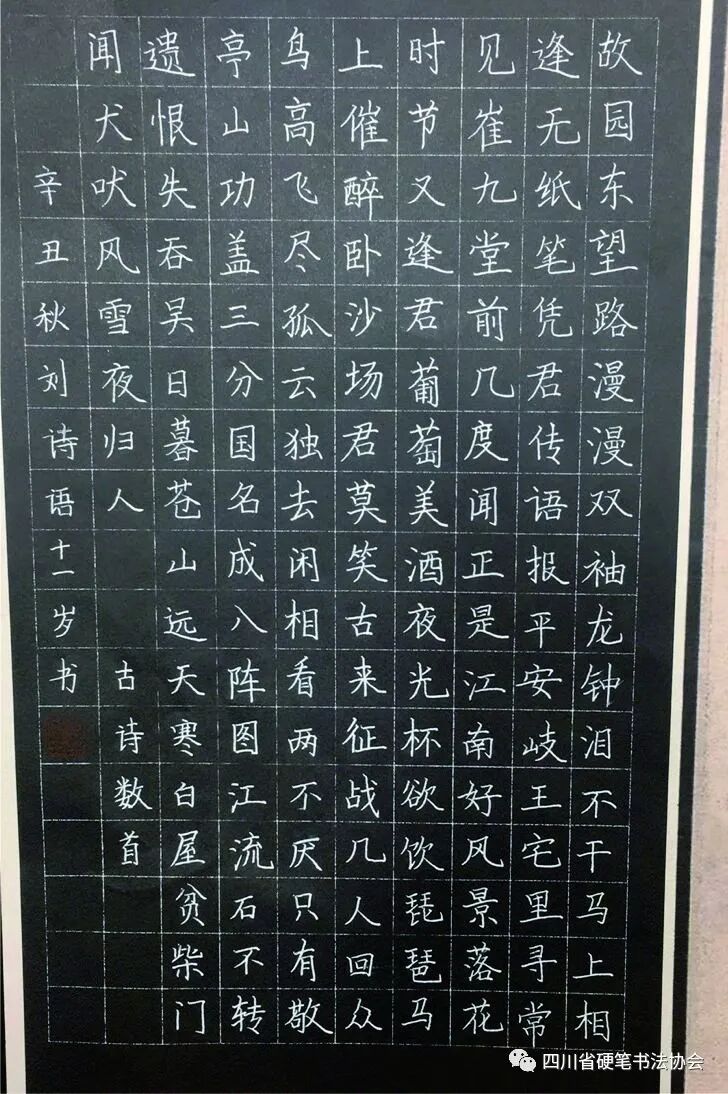 故园东望路漫漫双袖龙钟泪不干马上相
逢无纸笔凭君传语报平安岐王宅里寻常
见崔九堂前几度闻正是江南好风景落花
时节又逢君葡萄美酒夜光杯欲饮琵琶马
上催醉卧沙场君莫笑古来征战几人回众
鸟高飞尽孤云独去闲相看两不厌只有敬
亭山功盖三分国名成八阵图江流石不转
遗恨失吞吴日暮苍山远天寒白屋贫柴门
闻犬吠风雪夜归人 古诗数首
辛丑秋刘诗语十一岁书
四川省硬笔书法协会